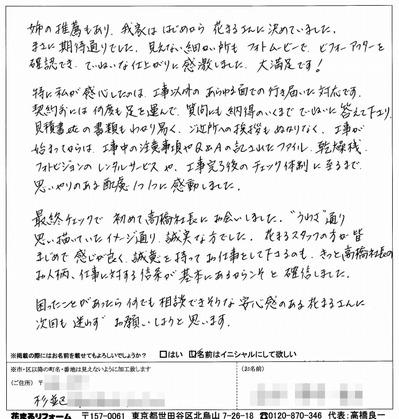 姉の推薦もあり、我家ははじめから花まるさんに決めていました。
まさに期待通りでした。見えない細かい所もフォトムービーで、ビフォーアフターを
確認でき、ていねいな仕上がりに感激しました。大満足です！
特に私が感心したのは、工事以外のあらゆる面での行き届いた対応です。
契約前には何度も足を運んで、質問にも納得のいくまでていねいに答えて下さり、
見積書etcの書類もわかり易く、ご近所への挨拶もぬかりなく、工事が
始まってからは、工事中の注意事項やQ&Aの記されたファイル、乾燥機、
フォトビジョンのレンタルサービスや、工事完了後のチェック体制に至るまで、
思いやりのある配慮1つ1つに感動しました。
最終チェックで初めて高橋社長にお会いしました。"うわさ"通り
思い描いていたイメージ通り、誠実な方でした。花まるスタッフの方が皆
まじめで感じが良く、誠意を持ってお仕事をして下さるのも、きっと高橋社長の
お人柄、仕事に対する信条が基本にあるからこそと確信しました。
困ったことがあったら何でも相談できそうな安心感のある花まるさんに
次回も迷わずお願いしようと思います。
※掲載の際にはお名前を載せてもよろしいでしょうか？ □はい ☑名前はイニシャルにして欲しい
※市・区以降の町名・番地は見えないように加工致します
（ご住所）〒
（お名前）
杉並区
花まるリフォーム 〒157-0061 東京都世田谷区北烏山7-26-18 ☎0120-870-346 代表:高橋良一